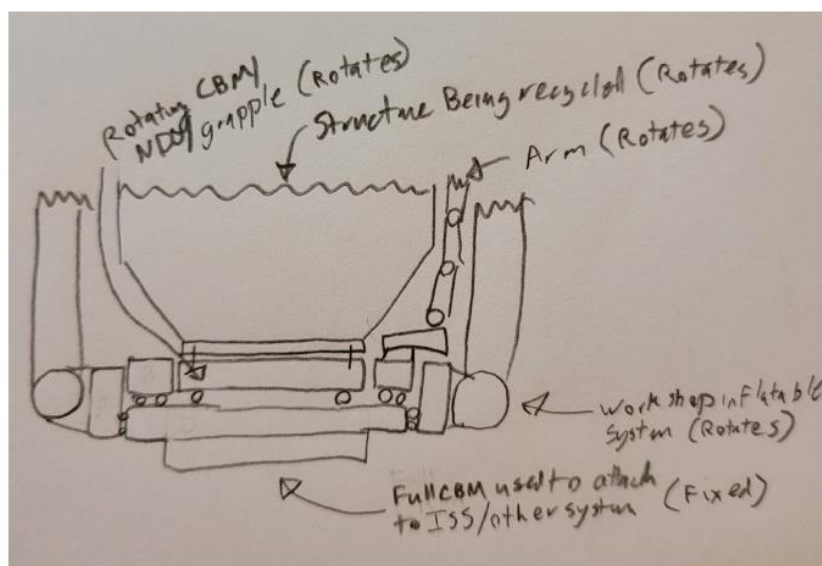 Rotating CBM/
grapple (Rotates)
Structure Being recycled (Rotates)
Arm (Rotates)
Workshop inflatable
System (Rotates)
Full CBM used to attach
to ISS/other system (Fixed)